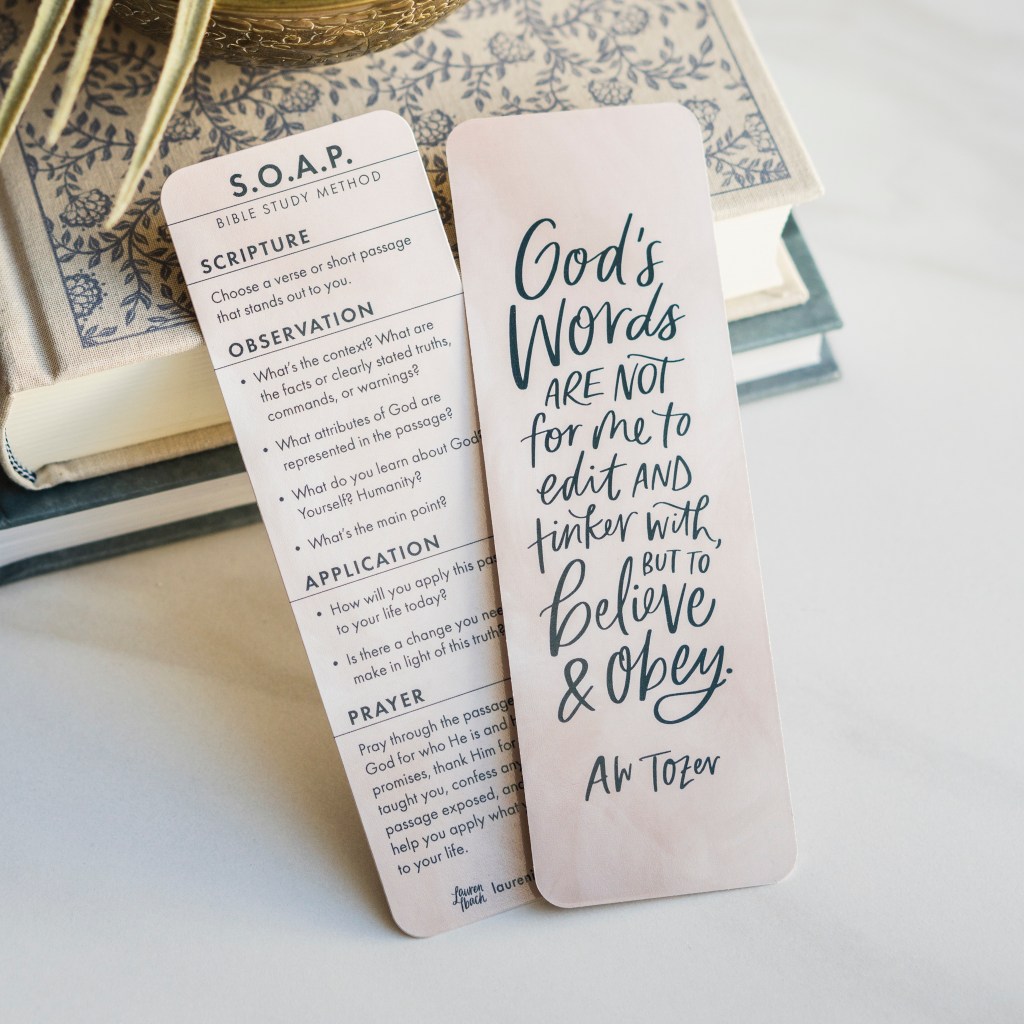 S.O.A.P.
BIBLE STUDY METHOD
SCRIPTURE
Choose a verse or short passage
that stands out to you.
OBSERVATION
• What's the context? What are
the facts or clearly stated truths,
commands, or warnings?
• What attributes of God are
represented in the passage?
• What do you learn about God?
Yourself? Humanity?
• What's the main point?
APPLICATION
• How will you apply this
to your life today?
• Is there a change you
make in light of this truth?
PRAYER
Pray through the passage
God for who He is and
promises, thank Him for
taught you, confess
passage exposed,
help you apply what
to your life.
Lauren
Ibach
God's
Words
ARE NOT
for me to
edit AND
tinker with,
BUT TO
believe
& obey.
AW TOZER